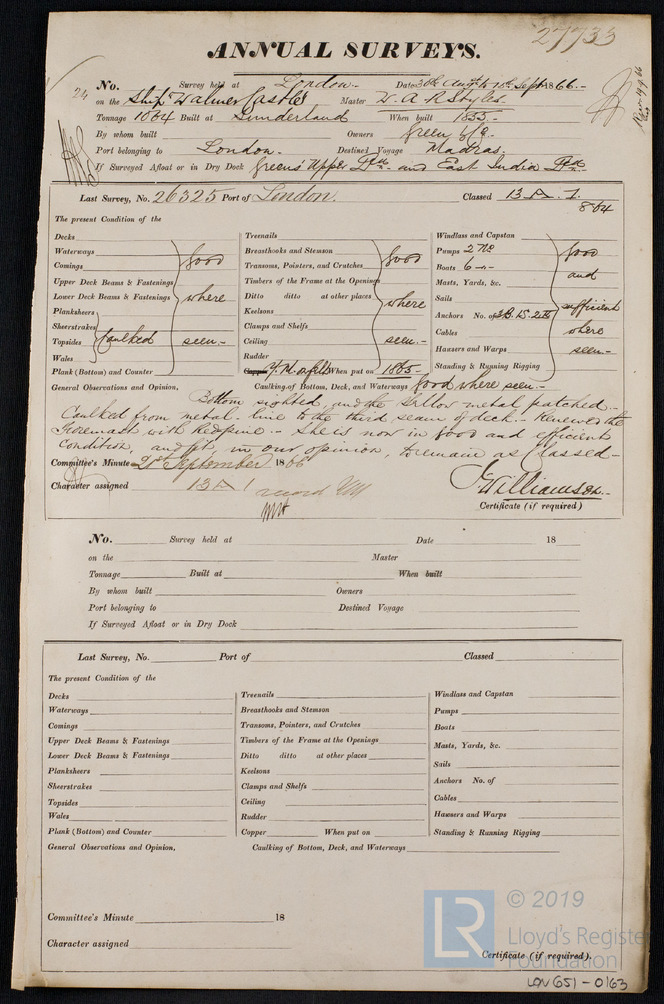 27733
ANNUAL SURVEYS.
24
No. Survey held at London. Date 30th Augt to 11th Sept 1866.-
on the Ship "Walmer Castle" Master W. A. R Styles.
Tonnage 1064 Built at Sunderland When built 1855.-
By whom built Owners Green & Co.
Port belonging to London. Destined Voyage Madras.
If Surveyed Afloat or in Dry Dock Greens' Upper Dck and East India Dck
Last Survey, No. 26325 Port of London. Classed 13 A. 1.
8-64
The present Condition of the
Decks
Waterways
Comings
Upper Deck Beams & Fastenings
Lower Deck Beams & Fastenings
Planksheers
Sheerstrakes
Topsides
Wales
Caulked
Plank (Bottom) and Counter
Good
where
seen.-
Treenails
Breasthooks and Stemson
Transoms, Pointers, and Crutches
Timbers of the Frame at the Openings
Ditto ditto at other places
Keelsons
Clamps and Shelfs
Ceiling
Rudder
Copper Y.M. on felt When put on 1865-
Good
where
seen.-
Windlass and Capstan
Pumps 2 No
Boats 6 -"-
Masts, Yards, &c.
Sails
Anchors No. of 3B. 1S. 2K
Cables
Hawsers and Warps
Standing & Running Rigging
Good
and
sufficient
where
seen-
General Observations and Opinion, Caulking of Bottom, Deck, and Waterways Good where seen.-
Bottom sighted, and the yellow metal patched.-
Caulked from metal line to the third seam of deck.- Renewed the
Foremast with Redpine.- She is now in good and efficient
Condition, and fit, in our opinion, to remain as Classed-
Committee's Minute 21st September 1866
Character assigned 13 A 1
J. Williamson.
Certificate (if required)
No. Survey held at Date 18
on the Master
Tonnage Built at When built
By whom built Owners
Port belonging to Destined Voyage
If Surveyed Afloat or in Dry Dock
Last Survey, No. Port of Classed
The present Condition of the
Decks
Waterways
Comings
Upper Deck Beams & Fastenings
Lower Deck Beams & Fastenings
Planksheers
Sheerstrakes
Topsides
Wales
Plank (Bottom) and Counter
Treenails
Breasthooks and Stemson
Transoms, Pointers, and Crutches
Timbers of the Frame at the Openings
Ditto ditto at other places
Keelsons
Clamps and Shelfs
Ceiling
Rudder
Copper When put on
Windlass and Capstan
Pumps
Boats
Masts, Yards, &c.
Sails
Anchors No. of
Cables
Hawsers and Warps
Standing & Running Rigging
General Observations and Opinion, Caulking of Bottom, Deck, and Waterways
Committee's Minute 18
Character assigned
Certificate (if required).
LR
© 2019
Lloyd's Register
Foundation
LON651-0163